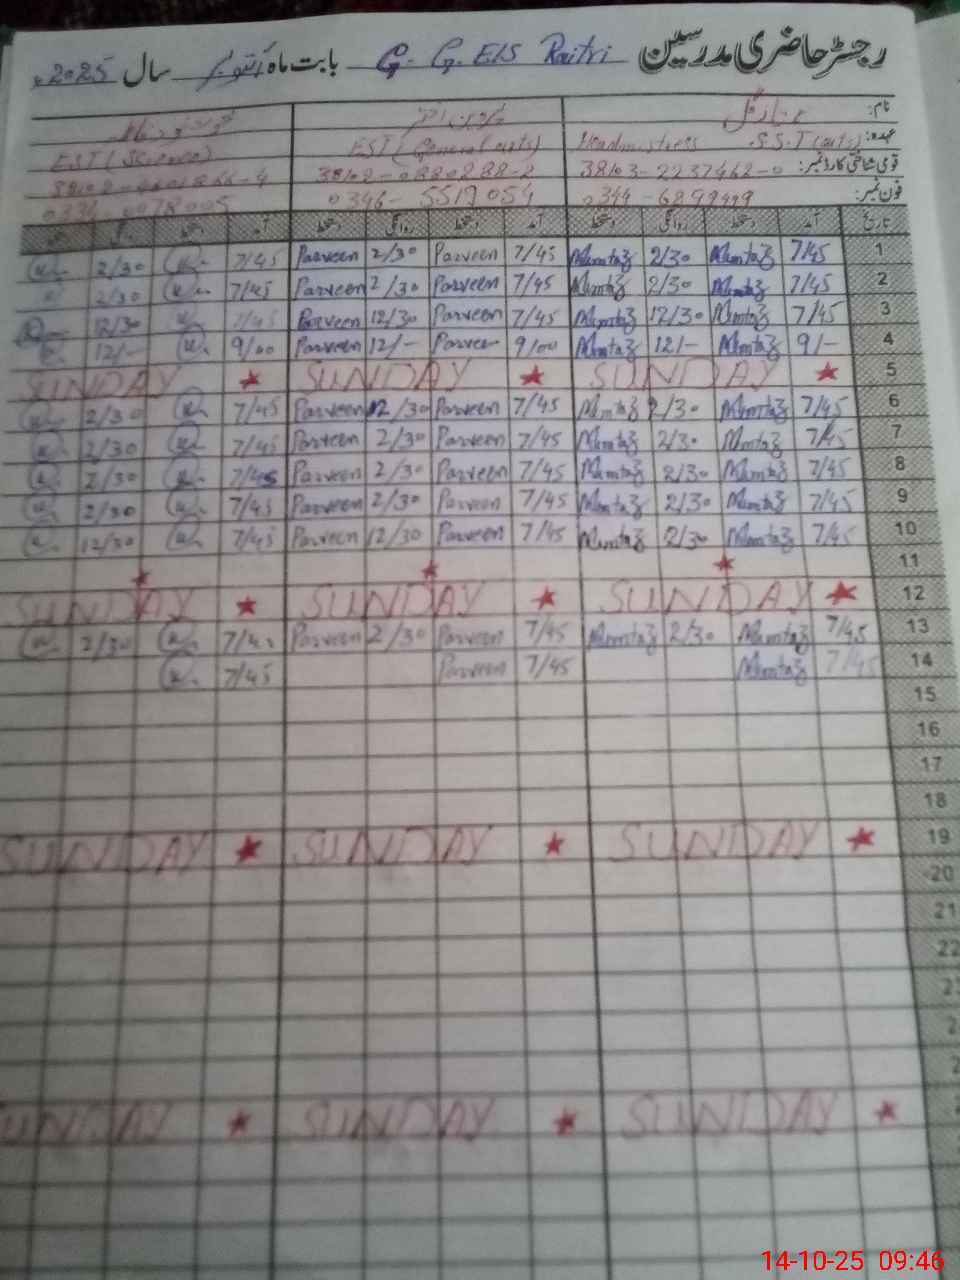 رجسٹر حاضری مدرسین G. G. E/S Raitri بابت ماہ اکتوبر سال 2025ء
نام:
عہدہ: Headmistress S.S.T (arts) EST (General arts) EST (Science)
قومی شناختی کارڈ نمبر: 38103-2237462-0 38102-0880288-2
فون نمبر: 0344-6899999 0346-5517054
تاریخ آمد دستخط روانگی دستخط آمد دستخط روانگی دستخط آمد دستخط
1 7/45 Mumtaz 2/30 Mumtaz 7/45 Parveen 2/30 Parveen 7/45 2/30
2 7/45 Mumtaz 2/30 Mumtaz 7/45 Parveen 2/30 Parveen 7/45 2/30
3 7/45 Mumtaz 12/30 Mumtaz 7/45 Parveen 12/30 Parveen 7/45 12/30
4 9/- Mumtaz 12/- Mumtaz 9/00 Parveen 12/- Parveen 9/00 12/-
5 SUNDAY SUNDAY SUNDAY
6 7/45 Mumtaz 2/30 Mumtaz 7/45 Parveen 2/30 Parveen 7/45 2/30
7 7/45 Mumtaz 2/30 Mumtaz 7/45 Parveen 2/30 Parveen 7/45 2/30
8 7/45 Mumtaz 2/30 Mumtaz 7/45 Parveen 2/30 Parveen 7/45 2/30
9 7/45 Mumtaz 2/30 Mumtaz 7/45 Parveen 2/30 Parveen 7/45 2/30
10 7/45 Mumtaz 2/30 Mumtaz 7/45 Parveen 12/30 Parveen 7/45 12/30
11
12 SUNDAY SUNDAY SUNDAY
13 7/45 Mumtaz 2/30 Mumtaz 7/45 Parveen 2/30 Parveen 7/45 2/30
14 7/45 Mumtaz 7/45 Parveen 7/45
15
16
17
18
19 SUNDAY SUNDAY SUNDAY
20
21
22
SUNDAY SUNDAY SUNDAY
14-10-25 09:46